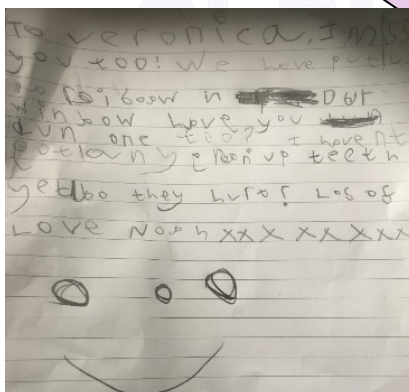 To veronica, I miss
you too! We have put u
rainbow in our
window have you
dun one too? I havent
got any grown up teeth
yet do they hurt? Los of
Love Noah xxx xxxxx